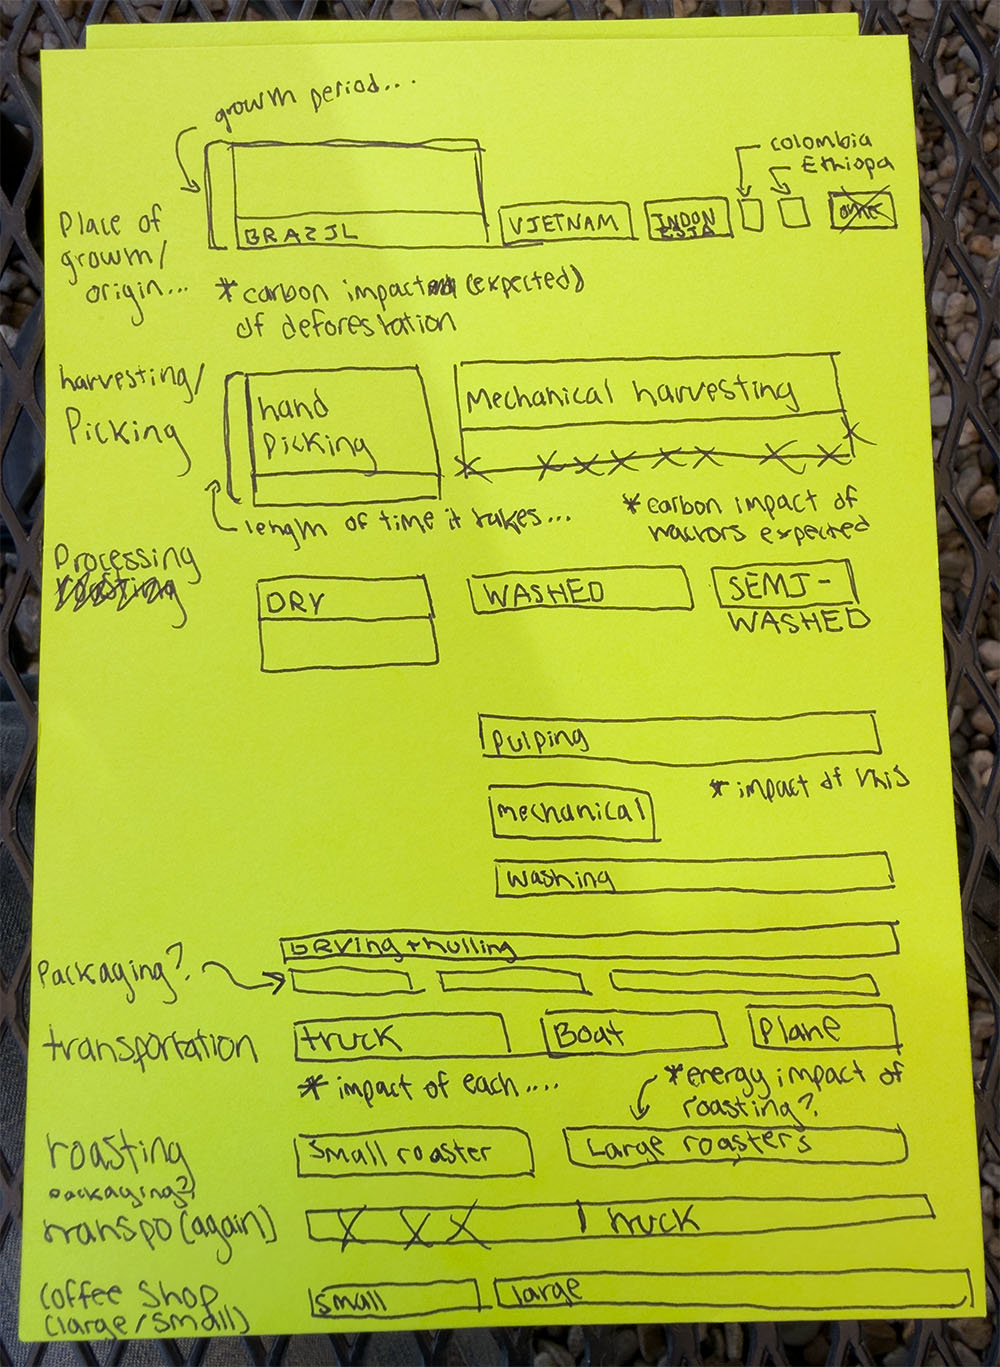 growth period...
colombia
Ethiopa
Place of
growth/
origin...
BRAZIL
VIETNAM
INDON
ESIA
other
*carbon impact (expected)
of deforestation
harvesting/
Picking
hand
Picking
Mechanical harvesting
length of time it takes...
*carbon impact of
tractors expected
Processing
roasting
DRY
WASHED
SEMI-
WASHED
pulping
*impact of this
mechanical
washing
DRYing + hulling
Packaging?
transportation
truck
Boat
Plane
* impact of each....
*energy impact of
roasting?
roasting
Small roaster
Large roasters
packaging?
transpo (again)
truck
Coffee Shop
(large/small)
small
large